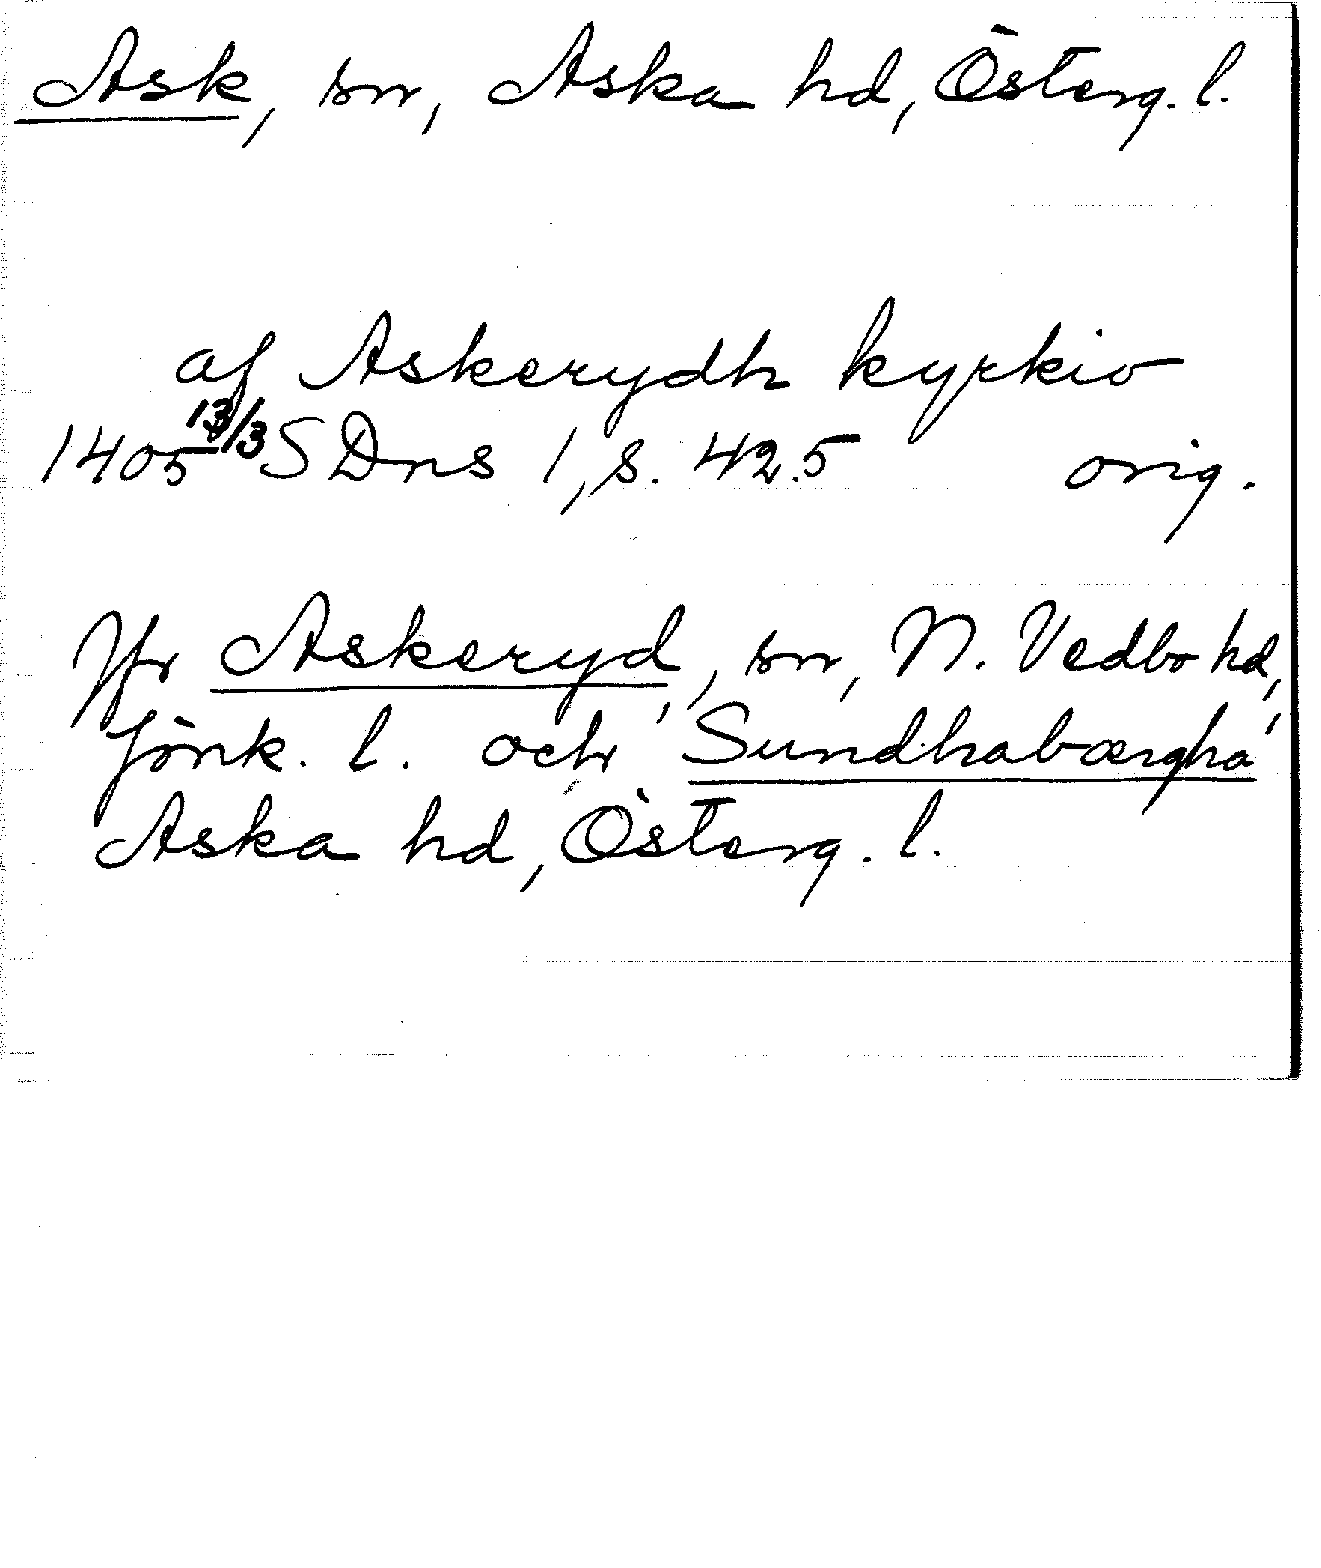 Ask, sn, Aska hd, Österg. l.
af Askerydh kyrkio
1405 13/3 SDns 1, s. 425 orig.
Jfr Askeryd, sn, N. Vedbo hd,
Jönk. l. och 'Sundhabærgha'
Aska hd, Österg. l.